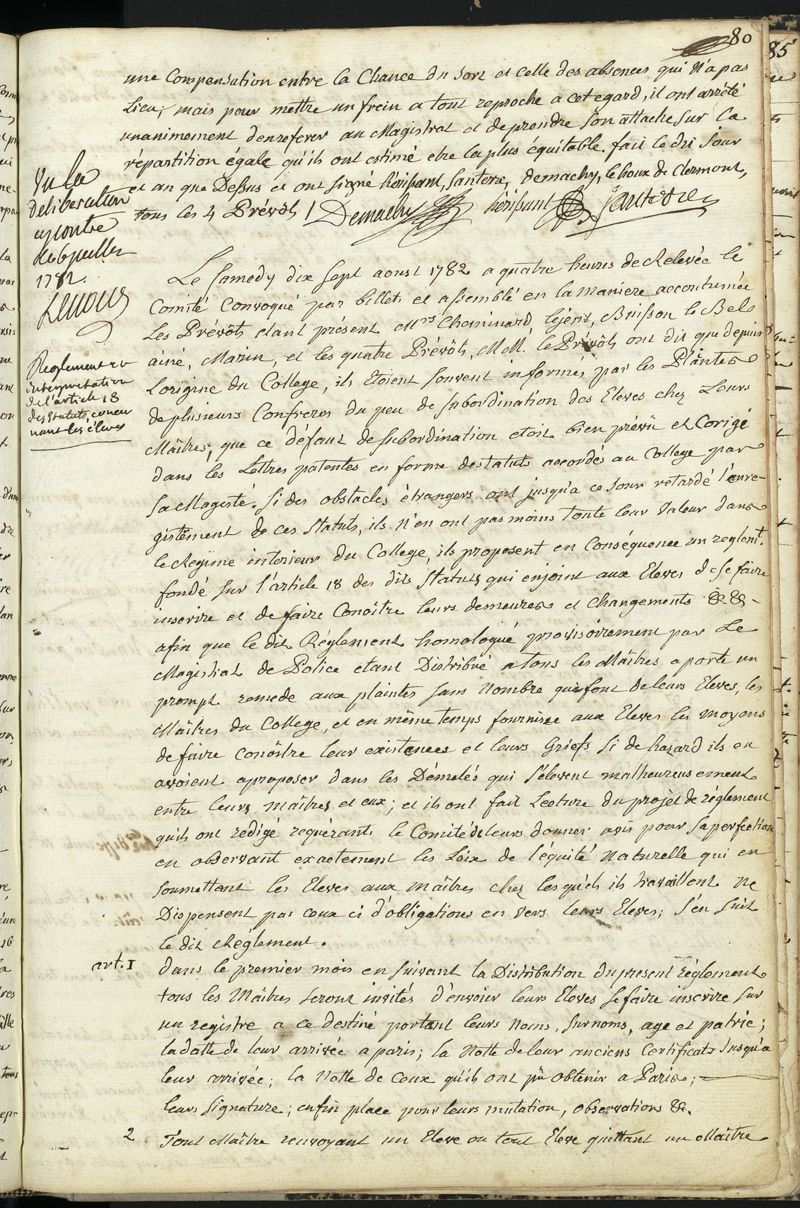 80
une Compensation entre la Chance du sort et celle des absences qui N'a pas
Lieu, mais pour mettre un frein a tout reproche a cet egard, il ont arrêté
unanimement d'enreferer au Magistrat et de prendre son attache sur la
répartition egale qu'ils ont estimé etre la plus équitable, fait le dit Jour
et an que Dessus et ont signé hérissant, Santerre, demachy, le houx de Clermont,
tous les 4 Prévôts / Demachy hérissant Santerre
Vu la
deliberation
cy contre
1782
Lenoir
Le Samedy dix Sept aoust 1782 a quatre heures de Relevée le
Comité Convoqué par billets et assemblé en la maniere accoutumée
Les Prévôts, etant présent Mrs Cheminard, Lejeril, Buisson, le Bel
ainé, Mazin, et les quatre Prévôts, M.M. le Prévôts ont dit que depuis
Lorigine du College, ils étoient souvent informés par les Plaintes
de plusieurs Confreres du peu de Subordination des Eleves chez Leurs
Maîtres, que ce défaut de subordination etoit bien prévû et Corigé
dans les Lettres patentes en forme de statuts accordés au College par
Sa Magesté. Si des obstacles étrangers ont jusqu'a ce Jour retardé l'enre-
gistrement de ces Statuts, ils n'en ont pas moins toute leur valeur dans
le Regime intérieur du College, ils proposent en Conséquence un reglent.
fondé sur l'article 18 des dits Statuts qui enjoint aux Eleves de se faire
inscrire et de faire Conoître leurs demeures et changements &c &c -
afin que le dit Réglement homologué provisoirement par Le
Magistrat de Police etant Distribué a tous les Maîtres aporte un
prompt remede aux plaintes sans nombre que font de leurs Eleves, les
Maîtres du College, et en même temps fournisse aux Eleves les moyens
de faire conoître leur existences et leurs Griefs si de hazard ils en
avoient a proposer dans les Démelés qui s'élevent malheureusement
entre leurs maîtres et eux; et ils ont fait Lecture du projet de réglement
qu'ils ont rédigé requérants le Comité de leurs donner avis pour sa perfection
en observant exactement les Loix de l'équité Naturelle qui en
soumettant les Eleves aux Maîtres chez lesquels ils travaillent Ne
Dispensent pas ceux ci d'obligations en vers leurs Eleves; s'en suit
le dit Réglement.
Reglement en
interpretation
de l'article 18
des Statuts, concer
nant les éleves
art. 1 dans le premier mois en suivant la Distribution du present réglement
tous les Maîtres seront invités d'envoier leurs Eleves se faire inscrire sur
un registre a ce destiné portant leurs Noms, surnoms, age et patrie;
la datte de leur arrivée a paris; la Notte de leur anciens Certificats Jusqu'a
leur arrivée; la Notte de Ceux qu'ils ont pu obtenir a Paris;
leur signature; enfin place pour leurs mutation, observations &c.
2 Tout Maître renvoyant un Eleve ou tout Eleve quittant un Maître